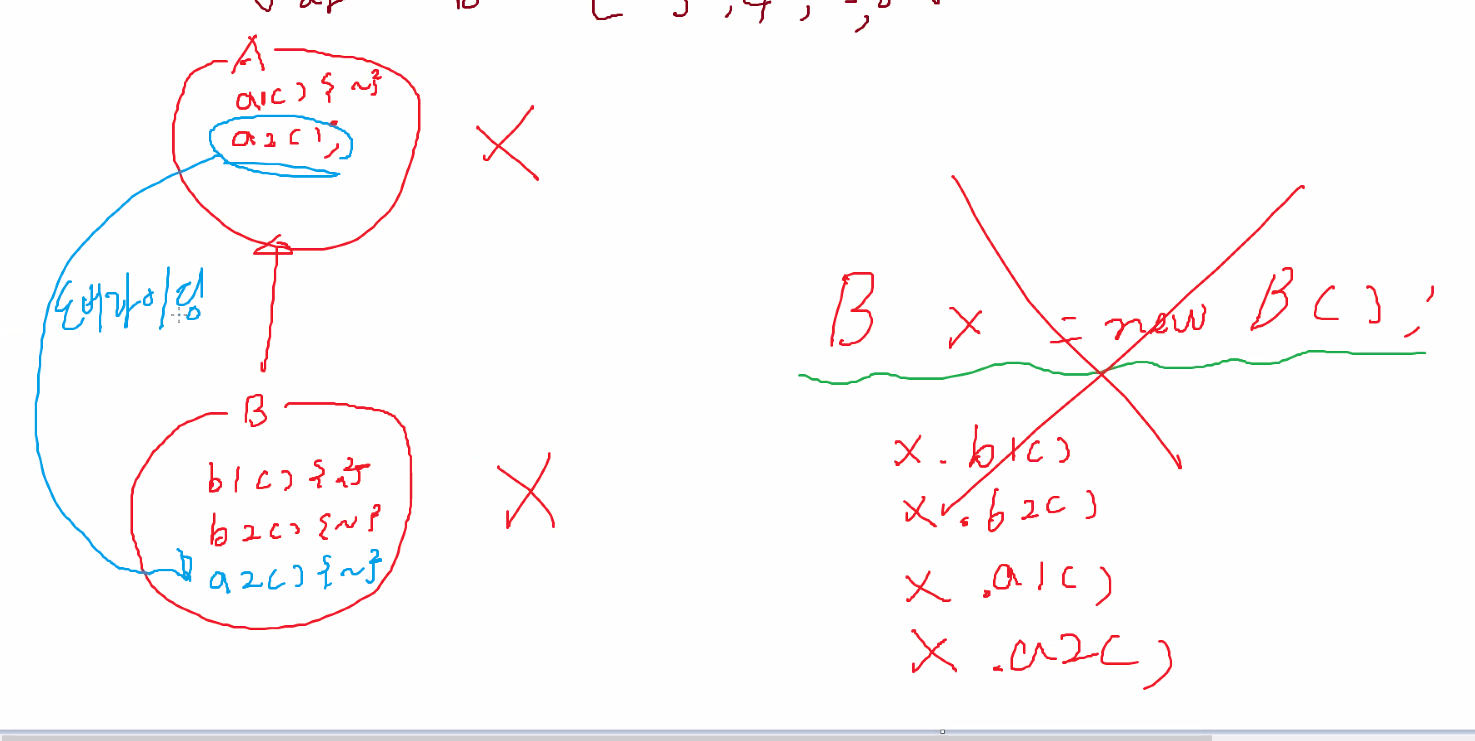 A
a1() {~}
a2();
B
b1() {~}
b2() {~}
a2() {~}
B x = new B();
x.b1()
x.b2()
x.a1()
x.a2()